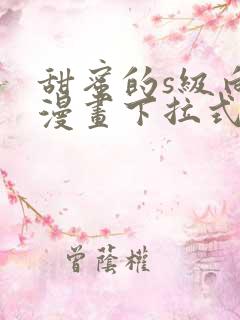 甜蜜的s級向
漫畫下拉式
曾蔭權